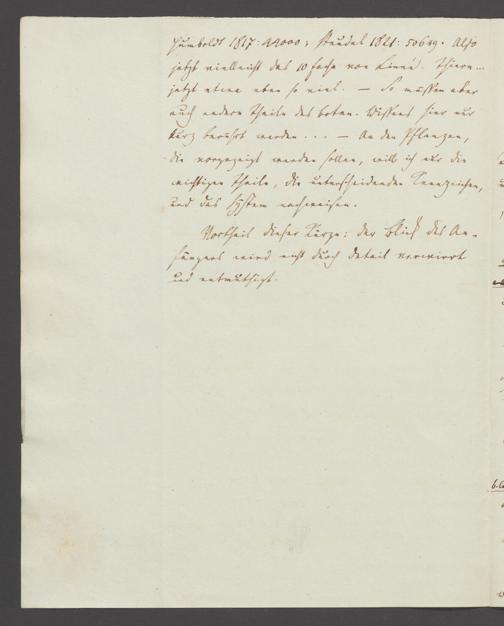 Humboldt 1817: 44000; Steudel 1821: 50649. Also
jetzt vielleicht das 10fache von Linné. Thiere...
jetzt etwa eben so viel. — So müssen aber
auch andere Theile des botan. Wissens hier nur
kurz berührt werden... — An den Pflanzen,
die vorgezeigt werden sollen, will ich nur die
wichtigen Theile, die unterscheidenden Kennzeichen,
und das System nachweisen.
Vortheil dieser Kürze: der Blick des An-
fängers wird nicht durch Detail verwirrt
und entmuthigt.